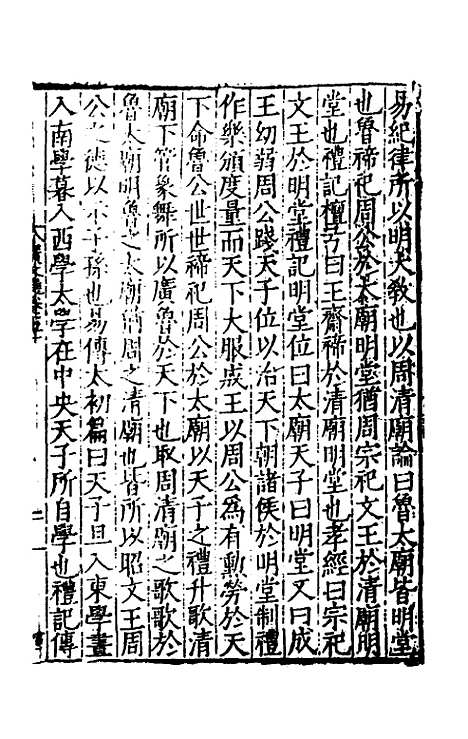 易紀律所以明大教也以周清廟論曰魯太廟皆明堂
也魯禘祀周公於太廟明堂猶周宗祀文王於清廟明
堂也禮記檀弓曰王齋禘於清廟明堂也孝經曰宗祀
文王於明堂禮記明堂位曰太廟天子曰明堂又曰成
王幼弱周公踐天子位以治天下朝諸侯於明堂制禮
作樂頒度量而天下大服成王以周公爲有勳勞於天
下命魯公世世禘祀周公於太廟以天子之禮升歌清
廟下管象舞所以廣魯於天下也取周清廟之歌歌於
魯太廟明魯之太廟猶周之清廟也皆所以昭文王周
公之徳以示子孫也易傳太初篇曰天子旦入東學晝
入南學暮入西學太學在中央天子所自學也禮記傳